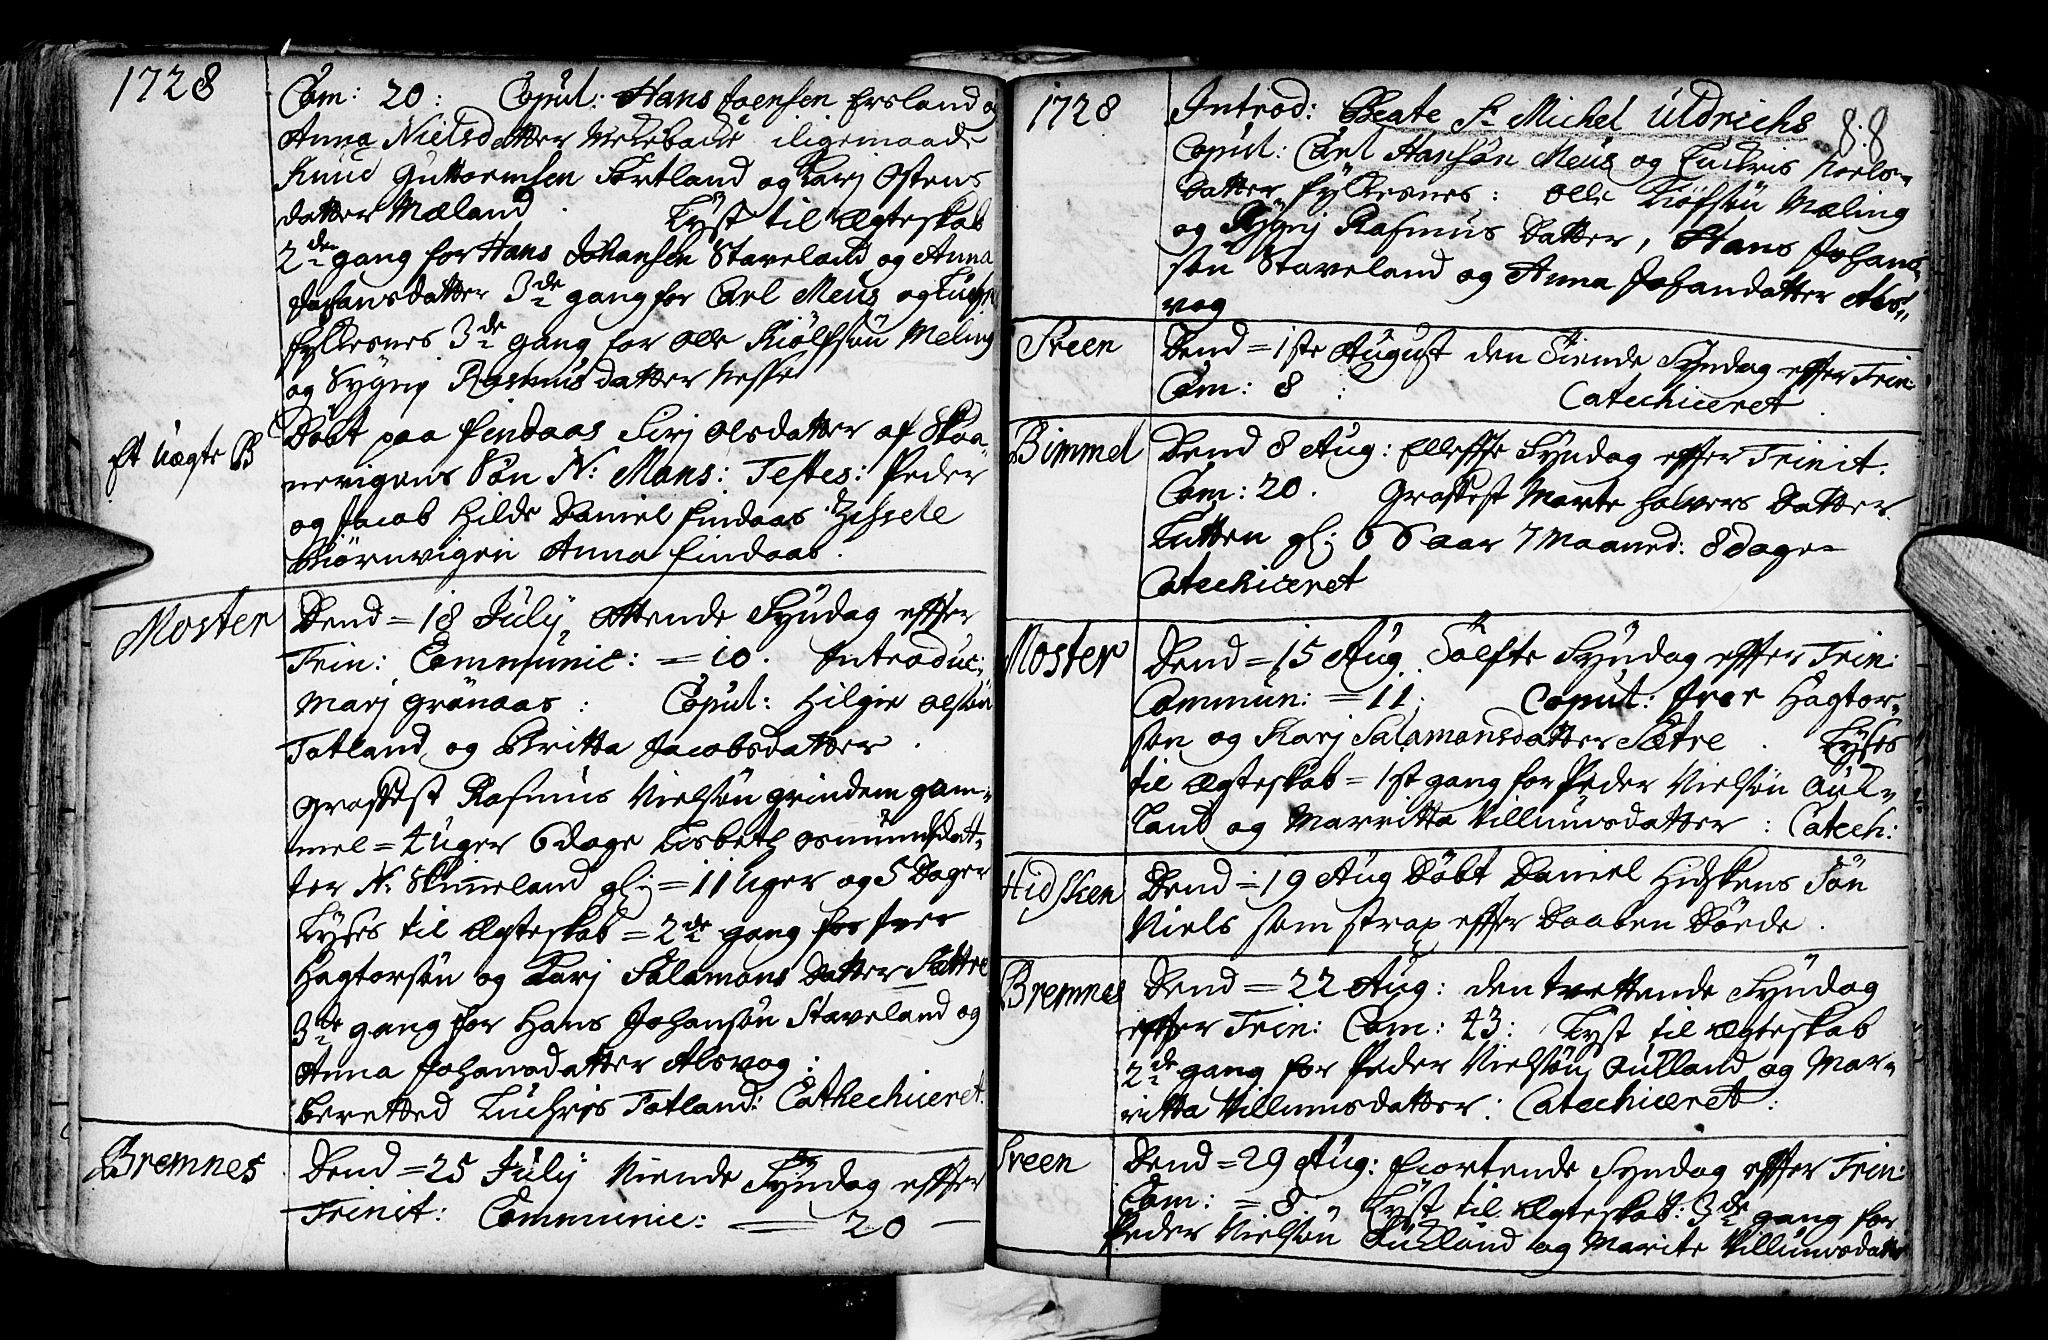 1728
Com: 20: Copul: Hans Joensen Ersland og
Anna Nielsdatter Mekebacke iligemaade
Knud Guttormsen Tortland og Karj Ostens
datter Mæland. Lyst til Ægteskab
2de gang for Hans Johansen Staveland og Anna
Johansdatter 3de gang for Carl Meüs og
Fylkesnes 3de gang for Olle Kiölfsön Meling
og Sygnj Rasmusdatter Neste
Et Uægte B
Döbt paa Findaas Sirj Olsdatter af Skaa-
nevigens Sön N: Mons: Testes: Peder
og Jacob Hilde Daniel Findaas Zissele
Biörnvigen Anna Findaas.
Moster
Dend = 18 Julÿ Ottende Syndag effter
Trin: Communic: = 10. Introduc:
Marj Grönaas: Copul: Hilgie Olsön
Totland og Britta Jacobsdatter.
Graffest Rasmus Nielsön Grindem gam-
mel = 4 Uger 6 dage Lisbeth Osmundsdat-
ter N: Skimmeland gl: = 11 Uger og 5 Dager
Lyses til Ægteskab = 2de gang for Iver
Hagtorsön og Karj Salamons Datter Sættre
3de gang for Hans Johansön Staveland og
Anna Johansdatter Alsvog:
Beretted Luchris Totland: Cathechiceret.
Bremnes
Dend = 25 Julÿ Niende Syndag effter
Trinit: Communic: = 20 —
1728
88
Introd: Beate Sr Michel Uldrichs
Copul: Carl Hansön Meüs og Luchris Neels-
datter Fylkesnes: Olle Kiöfsön Mæling
og Sygnj Rasmus Datter, Hans Johans
sön Staveland og Anna Johansdatter Als-
vog
Sveen
Dend = 1ste August den Tiende Syndag effter Trin
Com: 8: Catechiceret.
Bömmel
Dend 8 Aug: Elleffte Syndag effter Trinit.
Com: 20. Graffest Marte Halvers Datter
Lutten gl: 66 aar 7 Maaned: 8 dage
Catechiceret
Moster
Dend = 15 Aug. Tolfte Syndag effter Trin:
Commun: = 11: Copul: Iver Hagtor-
sön og Karj Salamonsdatter Sætre. Lyses
til Ægteskab = 1st gang for Peder Nielsön
Land og Marritta Villumsdatter: Catech:
Hidsken
Dend = 19 Aug Döbt Daniel Hidskens Sön
Niels som strax effter Daaben Döede.
Bremnes
Dend = 22 Aug: den trettende Syndag
effter Trin: Com: 43: Lyst til Ægteskab
2de gang for Peder Nielsön og Mar-
ritta Villumsdatter: Catechiceret:
Sveen
Dend = 29 Aug: Fiortende Syndag effter Trin:
Com: = 8. Lyst til Ægteskab: 3de gang for
Peder Nielsön og Marite Villumsdatter